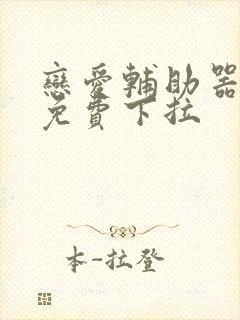 戀愛輔助器
免費下拉
本-拉登